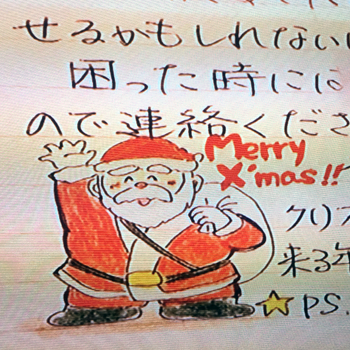 せるかもしれない
困った時には
ので連絡くださ
Merry
X'mas!!
クリス
来る年
PS.